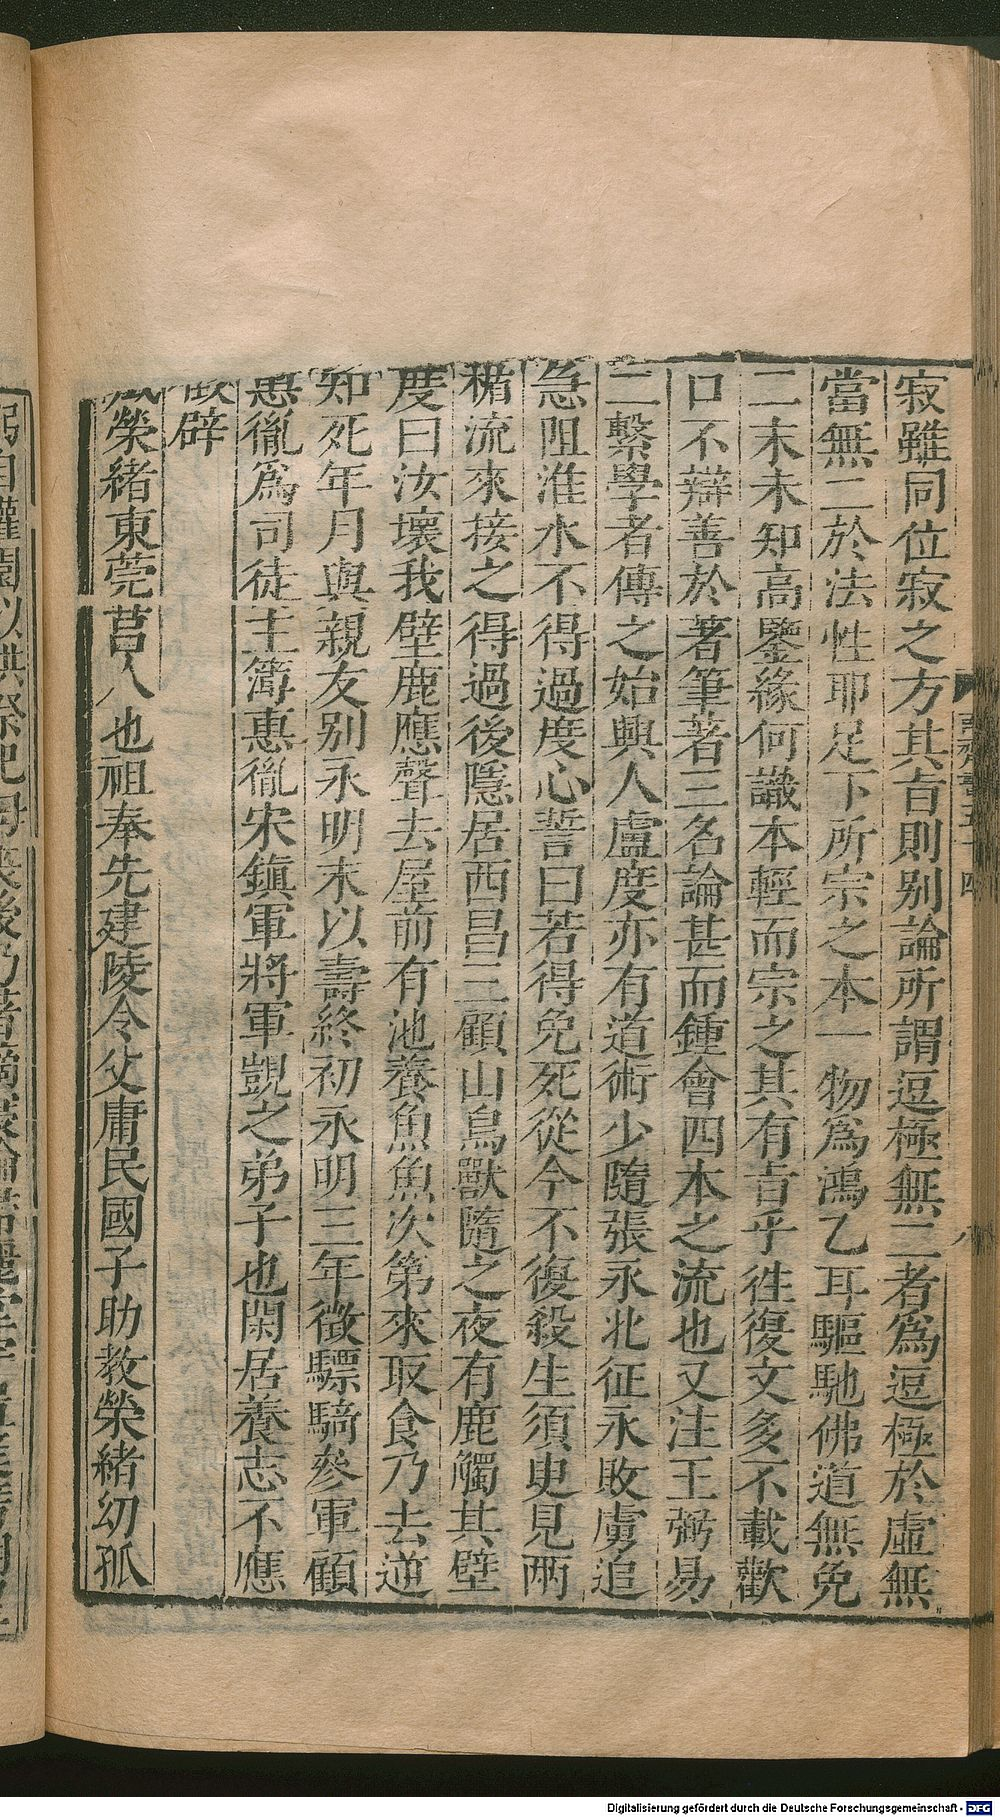 寂雖同位寂之方其旨則别論所謂逗極無二者爲逗極於虛無
當無二於法性耶足下所宗之本一物爲鴻乙耳驅馳佛道無免
二末未知高鑒緣何識本輕而宗之其有旨乎徃復文多不載歡
口不辯善於著筆著三名論甚而鍾會四本之流也又注王弼易
二繫學者傳之始興人盧度亦有道術少隨張永北征永敗虜追
急阻淮水不得過度心誓曰若得免死從今不復殺生須臾見兩
楯流來接之得過後隱居西昌三顧山鳥獸隨之夜有鹿觸其壁
度曰汝壞我壁鹿應聲去屋前有池養魚魚次第來取食乃去逆
知死年月與親友别永明末以壽終初永明三年徵驃騎參軍顧
惠胤爲司徒主簿惠胤宋鎮軍將軍覬之弟子也閑居養志不應
徵辟
臧榮緒東莞莒人也祖奉先建陵令父庸民國子助教榮緒幼孤
Digitalisierung gefördert durch die Deutsche Forschungsgemeinschaft - DFG